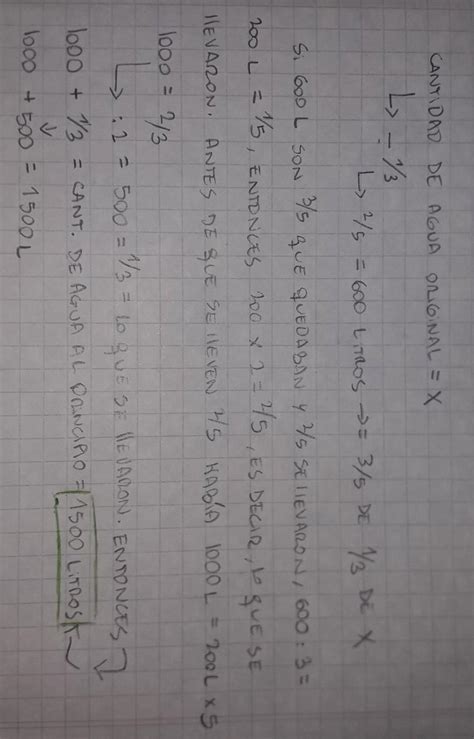 CANTIDAD DE AGUA ORIGINAL = X
↳ - 1/3
↳ 2/5 = 600 LITROS → = 3/5 DE 1/3 DE X
Si 600 L SON 3/5 QUE QUEDABAN Y 2/5 SE LLEVARON, 600 : 3 =
200 L = 1/5, ENTONCES 200 x 2 = 2/5, ES DECIR, LO QUE SE
LLEVARON. ANTES DE QUE SE LLEVEN 2/5 HABÍA 1000 L = 200L x 5
1000 = 2/3
↳ : 2 = 500 = 1/3 = LO QUE SE LLEVARON. ENTONCES
1000 + 1/3 = CANT. DE AGUA AL PRINCIPIO = 1500 LITROS
1000 + 500 = 1500L